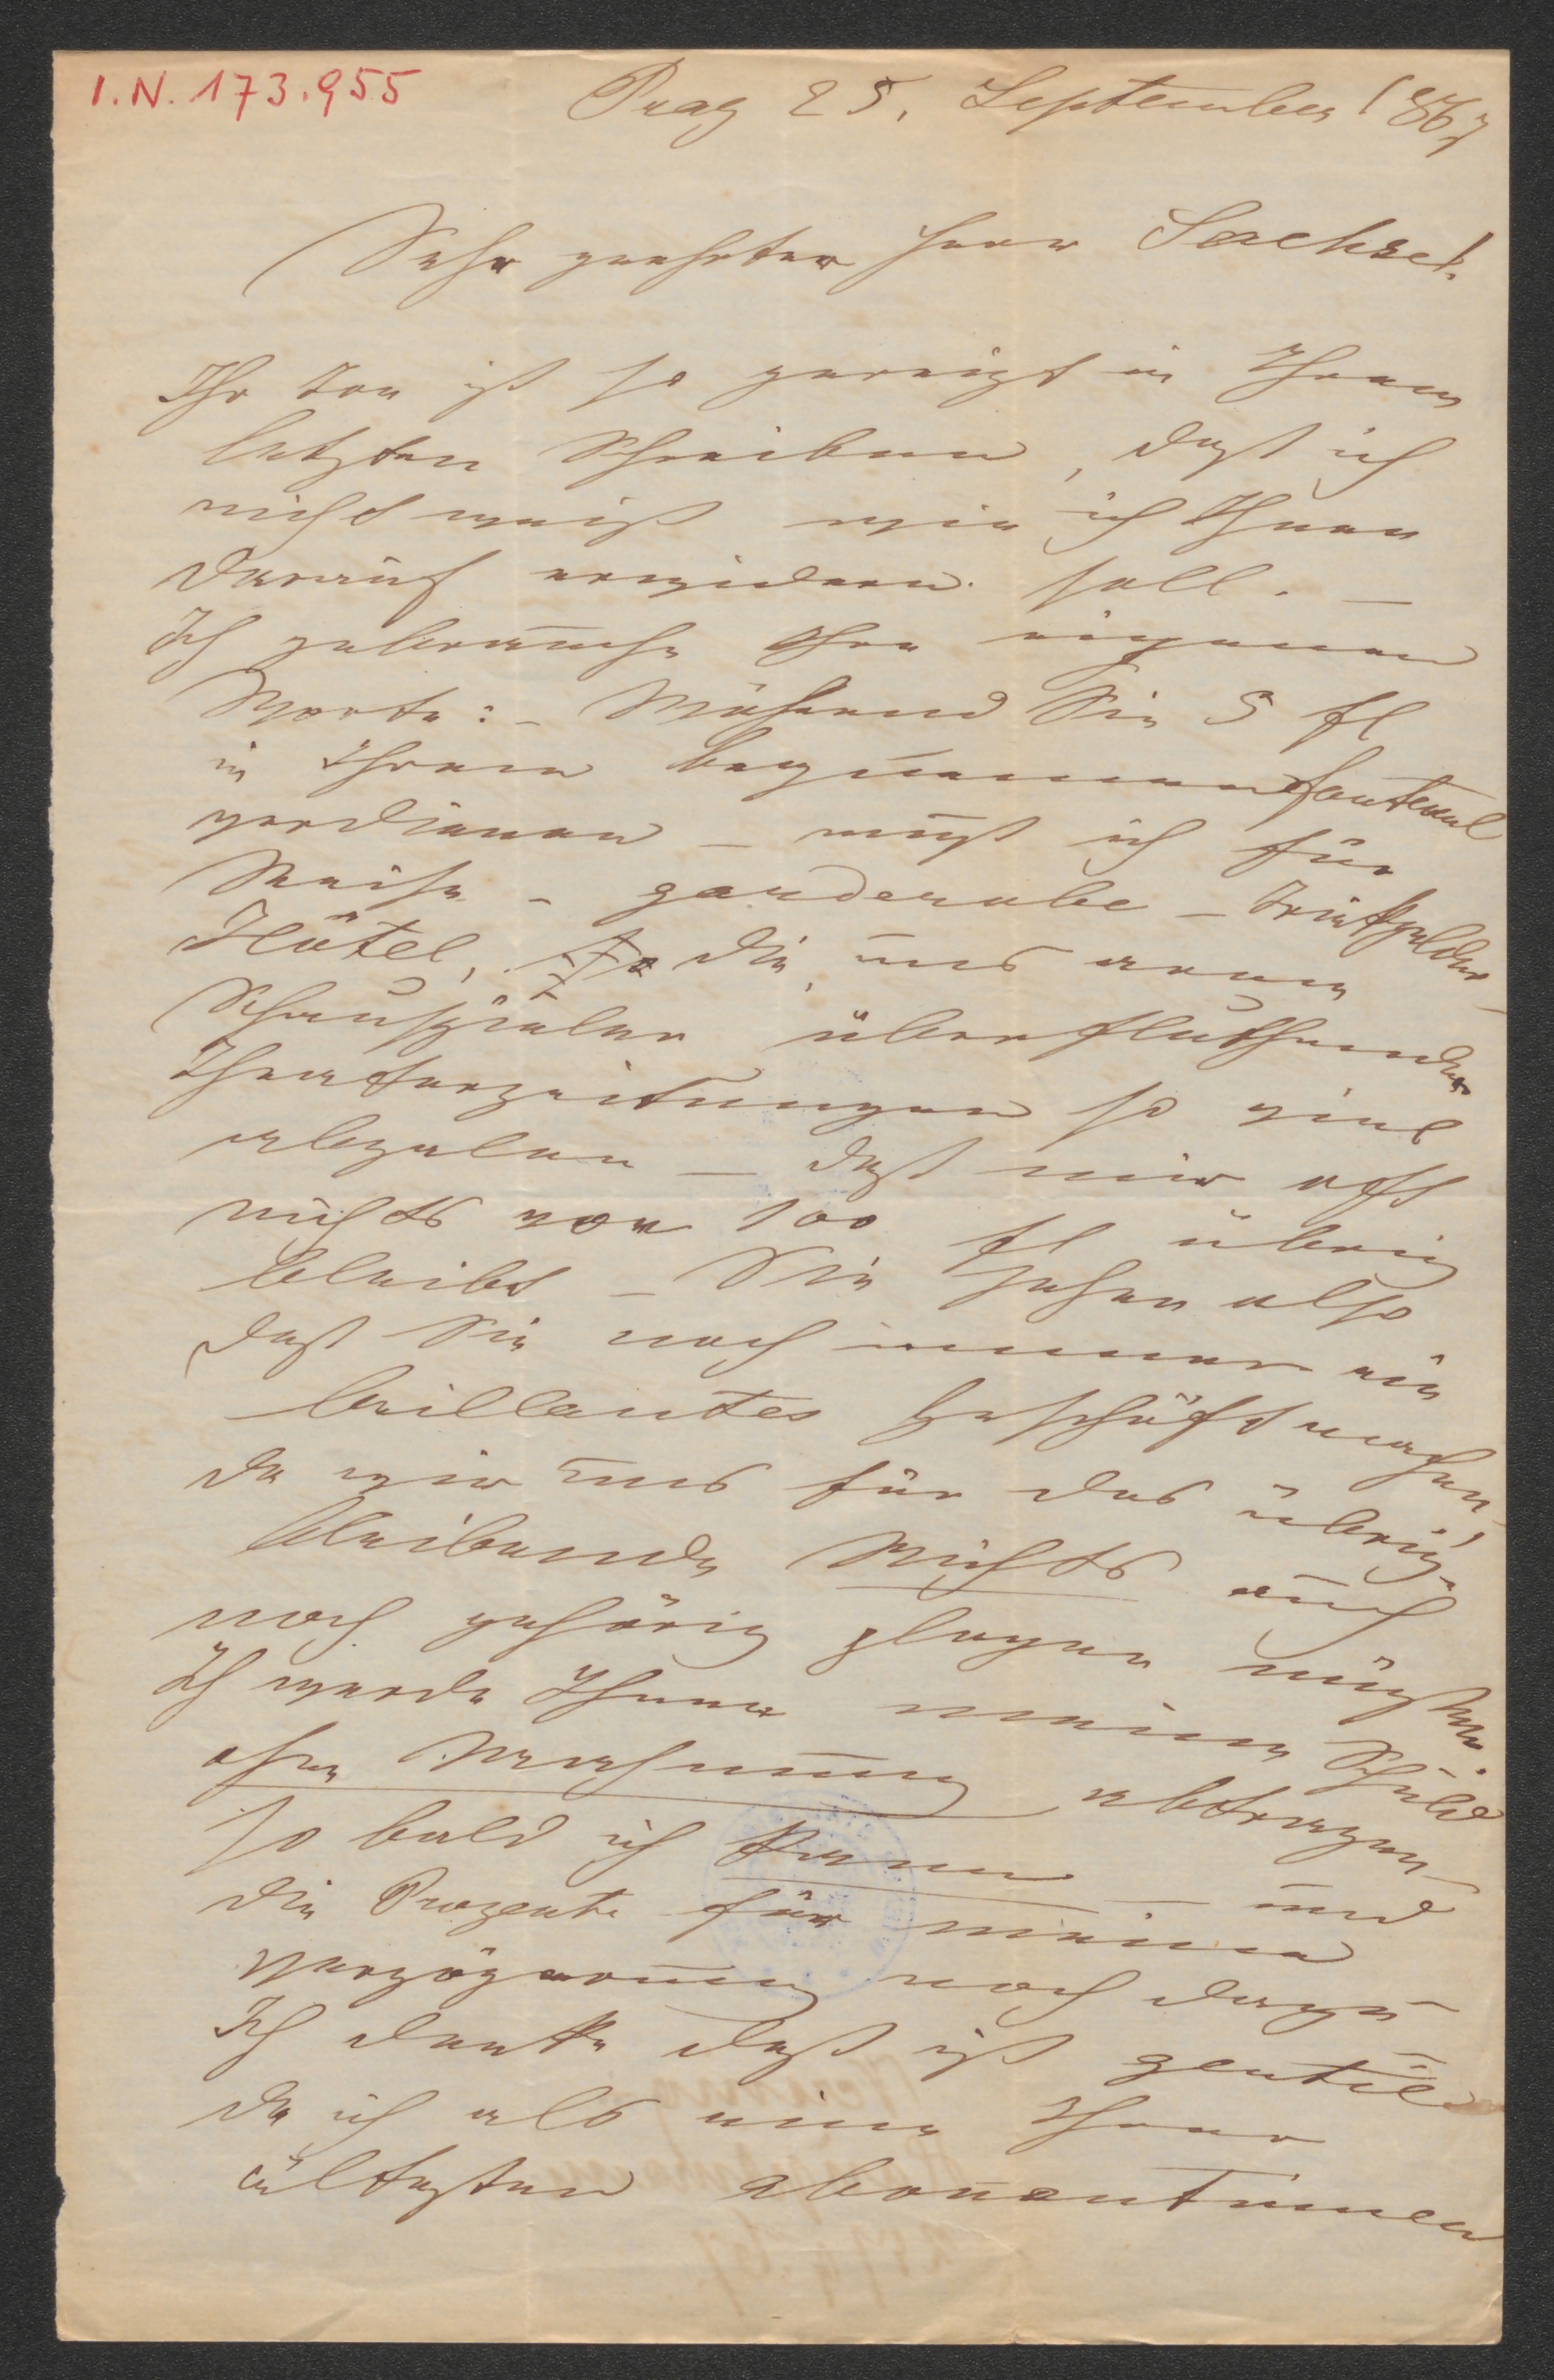 I.N. 173.955
Prag 25. September 1867
Sehr geehrter Herr Sachse!
Ihr Ton ist so gereizt in Ihrem
letzten Schreiben, daß ich
nicht weiß wie ich Ihnen
darauf erwidern soll. –
Ich gebrauche Ihre eigenen
Worte: – Während Sie 5 fl
in Ihrem bequemen fauteuil
verdienen – muß ich für
Reise – garderobe – Trinkgelder –
Hôtel, die uns arme
Schauspieler überfluthenden
Theaterzeitungen so viel
abzalen – daß mir oft
nichts von 100 fl übrig
bleibt – Sie sehen also
daß Sie noch immer ein
brillantes Geschäft machen,
da wir uns für das übrig
bleibende Nichts auch
noch gehörig plagen müßen.
Ich werde Ihnen meine Schuld
ohne Mahnung abtragen –
so bald ich kann – und
die Prozente für meine
Verzögerung noch dazu –
Ich denke daß ist gentil
da ich als eine Ihrer
ältesten abonentinen